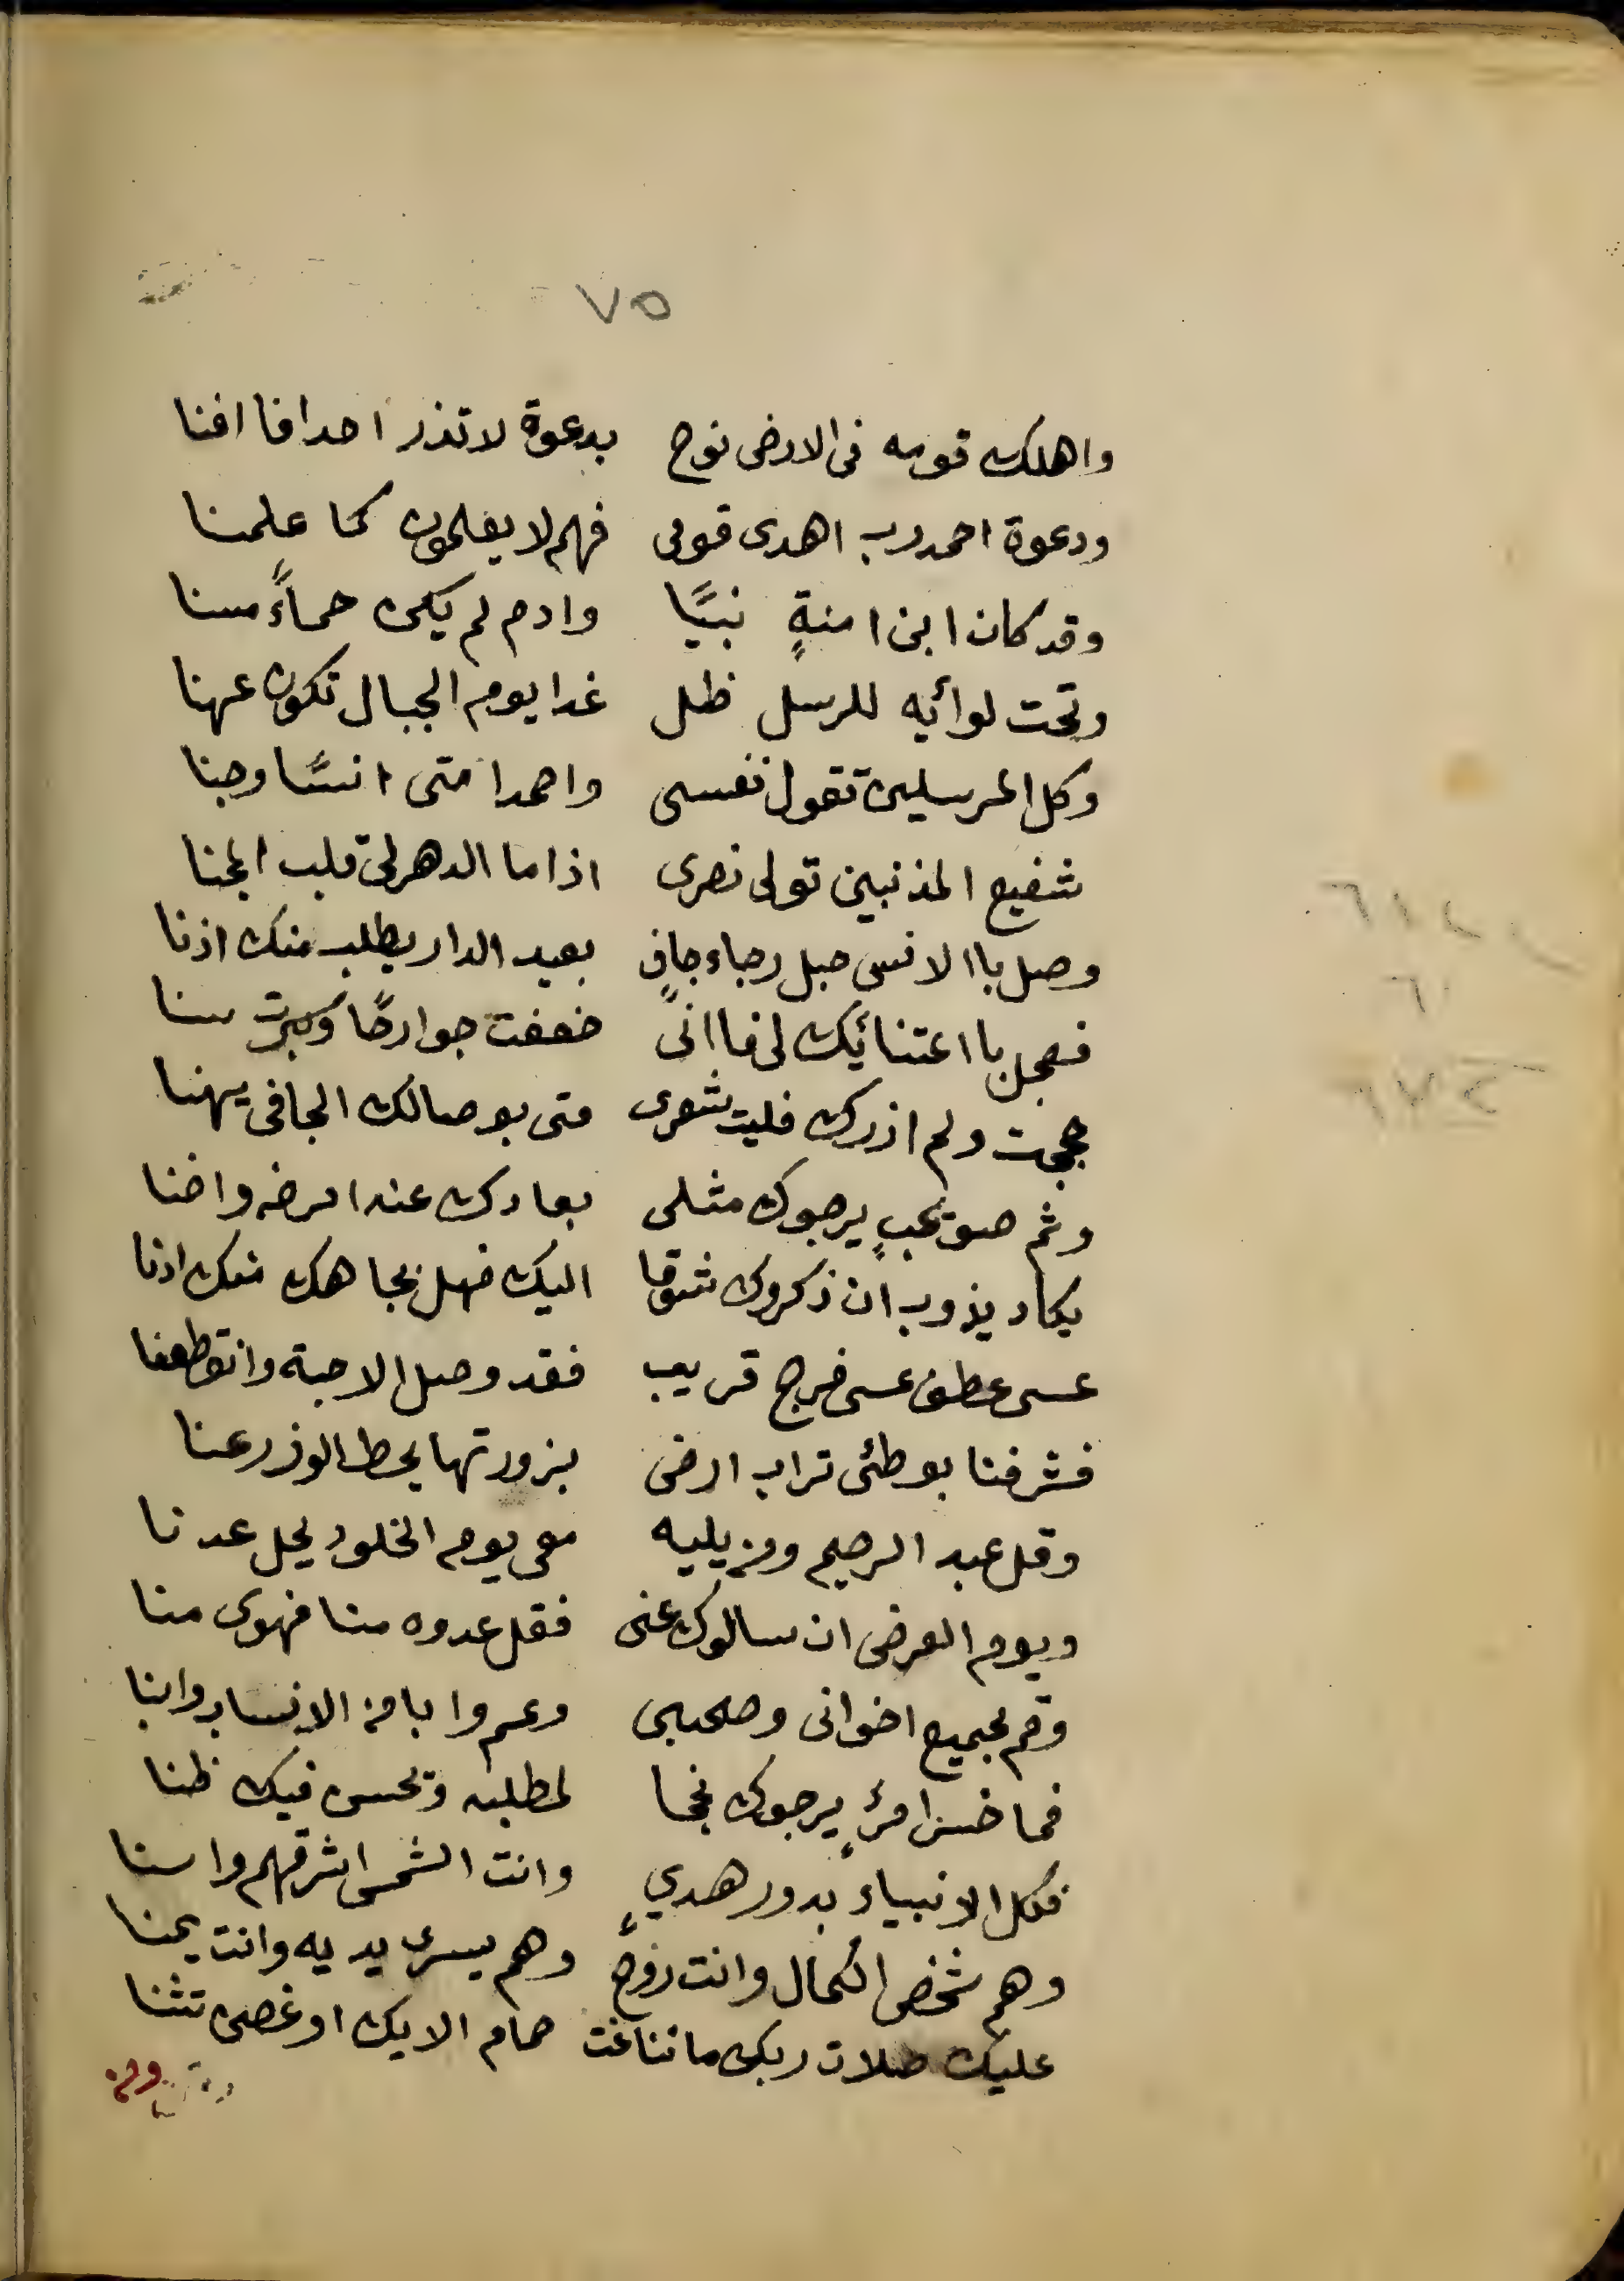 ٧٥
واهلك قومه فى الارض نوح بدعوة لا تذر احدا فا افنا
ودعوة احمد رب اهدى قومى فهم لا يعلمون كما علمنا
وقد كان ابن امنةٍ نبيًا وادم لم يكن حماءً مسنا
وتحت لوائيه للرسل ظل غدا يوم الجبال تكون عهنا
وكل المرسلين تقول نفسى واحمدا متى انسًا وجنا
شفيع المذنبين تولى نصرى اذا ما الدهر لى قلب المجنا
وصل باالانس حبل رجاء جانٍ بعيد الدار يطلب منك اذنا
فعجل بااعتنائيك لى فاانى ضعفت جوارحًا وكبرت سنا
حججت ولم ازرك فليت شعرى متى بوصالك الجافى يهنا
وثم صوت محبٍ يرجوك مثلى بعادك عنه امرضه واضنا
يكاد يذوب ان ذكروك شوقا اليك فهل بجاهك منك ادنا
عسى عطف عسى فرج قريب فقد وصل الاحبة وانقطعنا
فشرفنا بوطئ تراب ارض بزورتها يحط الوزر عنا
وقل عبد الرحيم ومن يليه معى يوم الخلود يحل عدنا
ويوم العرض ان سالوك عنى فقل عدوه منا فهوى منا
وقم بجميع اخوانى وصحبى وعم وابا من الانساب وابنا
فما خسر امرءٍ يرجوك نجحا لمطلبه وتحسن فيك ظنا
فكل الانبياء بدور هدي وانت الشمس اشرقهم واسنا
وهم شخص الكمال وانت روح وهم يسرى يديه وانت يمنا
عليك صلات ربك ما تناغت حمام الايك او غصن تثنا